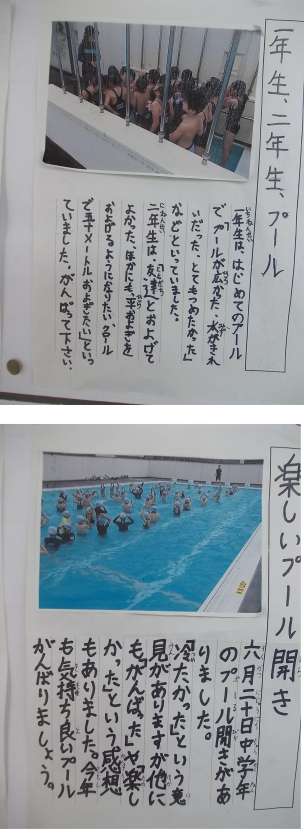 一年生、二年生、プール
一年生は、はじめてのプール
で「プールが広かった、水がきれ
いだった、とてもつめたかった」
などといっていました。
二年生は、「友達とおよげて
よかった、ほかにも、平およぎを
およげるようになりたい、クロール
で五十メートルおよぎたい」といっ
ていました。がんばって下さい。
楽しいプール開き
六月二十日中学年
のプール開きがあ
りました。
「冷たかった」という意
見がありますが他に
も「がんばった」や「楽し
かった」という感想
もありました。今年
も気持ち良いプール
がんばりましょう。